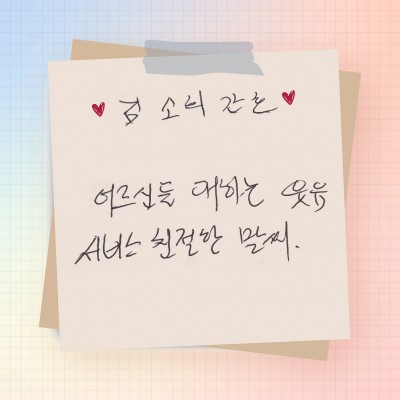 ♥ 검 소의 간호 ♥
어르신들 대하는 웃음
서비스 친절한 말씨.